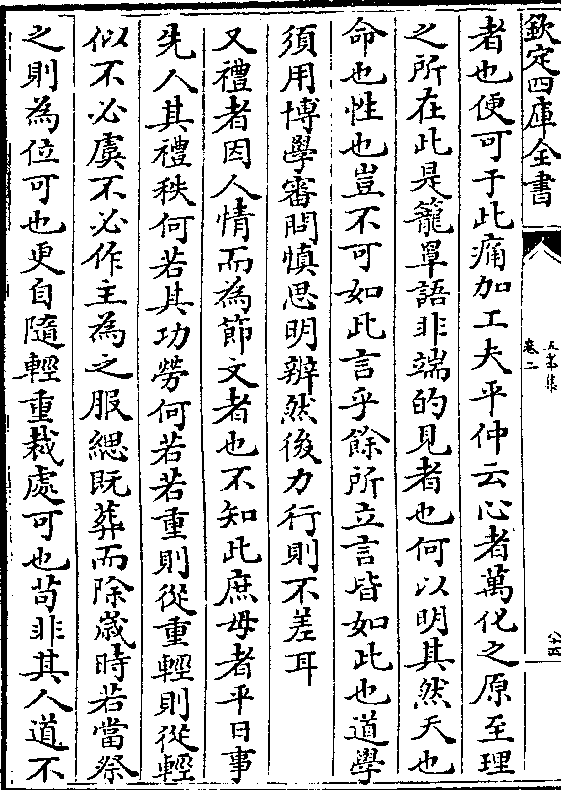 欽定四庫全書
五峯集
卷二
者也便可于此痛加工夫平仲云心者萬化之原至理
之所在此是籠罩語非端的見者也何以明其然天也
命也性也豈不可如此言乎餘所立言皆如此也道學
須用博學審問慎思明辨然後力行則不差耳
又禮者因人情而為節文者也不知此庶母者平日事
先人其禮秩何若其功勞何若若重則從重輕則從輕
似不必虞不必作主為之服緦既葬而除歲時若當祭
之則為位可也更自隨輕重裁處可也苟非其人道不